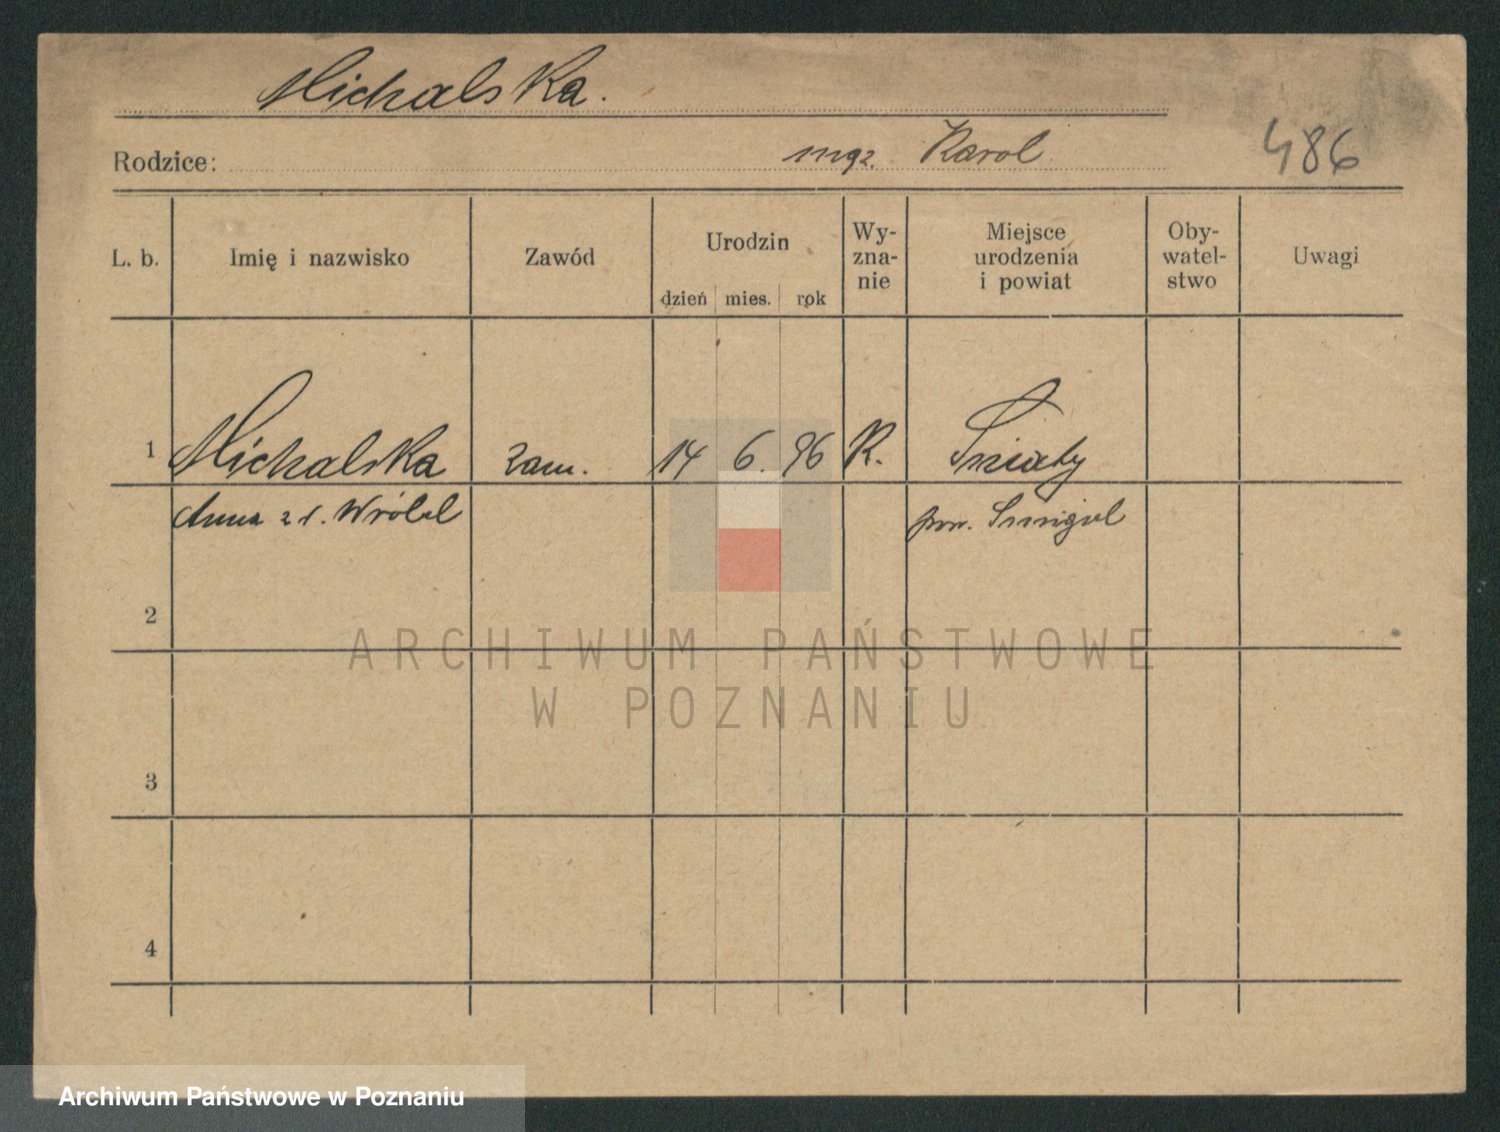 Michalska.
Rodzice: mąż. Karol
486
L. b. Imię i nazwisko Zawód Urodzin dzień mies. rok Wy-zna-nie Miejsce urodzenia i powiat Oby-watel-stwo Uwagi
1 Michalska zam. 14 6. 96 R. Śniaty
Anna z d. Wróbel pow. Śmigiel
2
3
4
ARCHIWUM PAŃSTWOWE
W POZNANIU
Archiwum Państwowe w Poznaniu